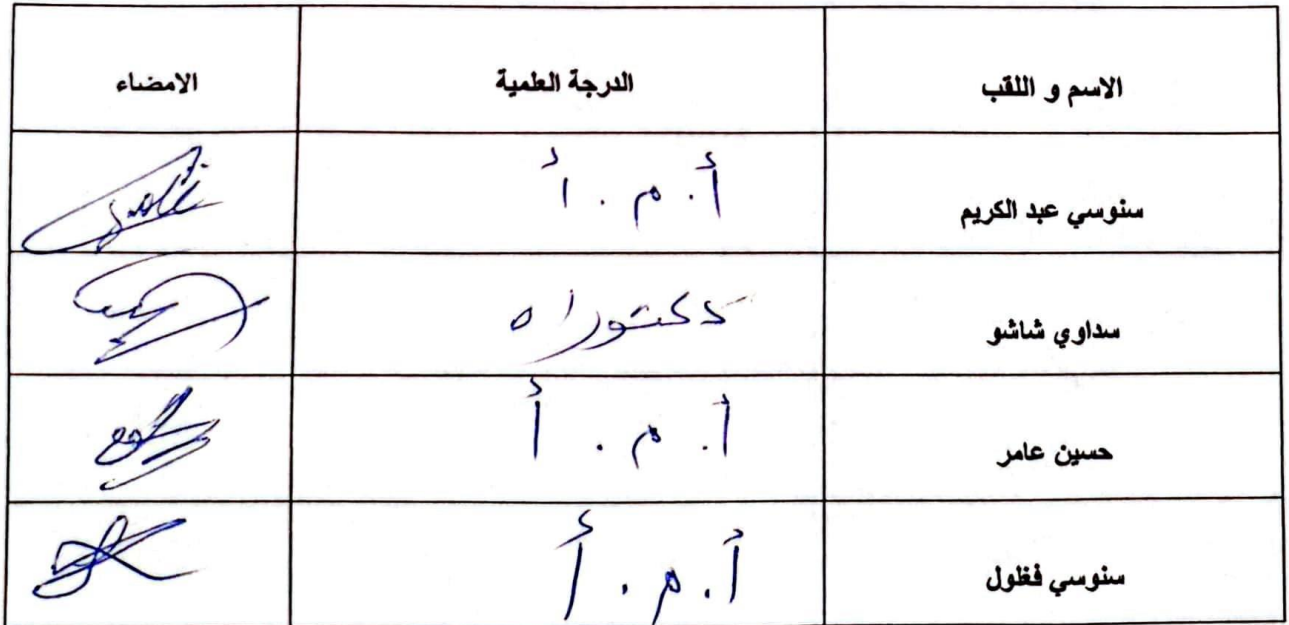 الاسم و اللقب الدرجة العلمية الامضاء
سنوسي عبد الكريم أ. م. أ
سداوي شاشو دكتوراه
حسين عامر أ. م. أ
سنوسي فغلول أ. م. أ